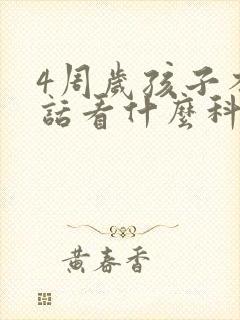 4周歲孩子
話看什麼科
黄春香